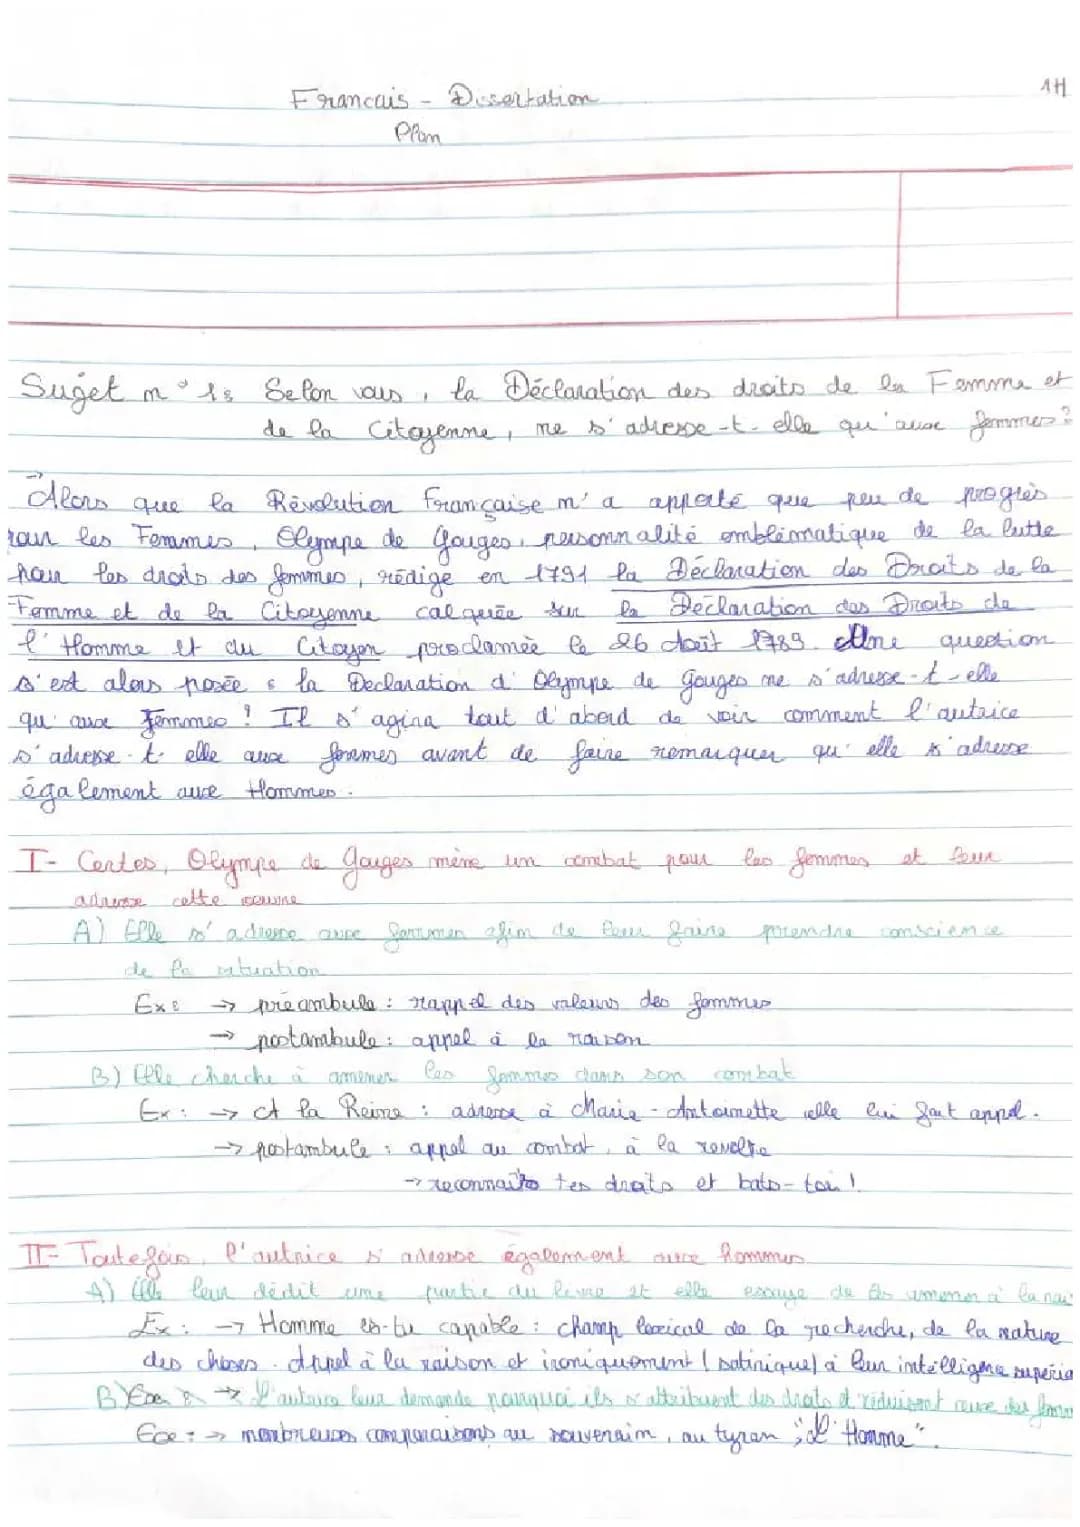 Francais - Dissertation
1H
Plan
Sujet n°1: Selon vous, la Déclaration des droits de la Femme et
de la Citoyenne, ne s'adresse-t-elle qu'aux femmes?
→ Alors que la Révolution Française n'a apporté que peu de progrès
pour les Femmes, Olympe de Gouges, personnalité emblématique de la lutte
pour les droits des femmes, rédige en 1791 la Déclaration des Droits de la
Femme et de la Citoyenne calquée sur la Déclaration des Droits de
l'Homme et du Citoyen proclamée le 26 Août 1789. Une question
s'est alors posée : la Déclaration d'Olympe de Gouges ne s'adresse-t-elle
qu'aux Femmes? Il s'agira tout d'abord de voir comment l'autrice
s'adresse-t-elle aux femmes avant de faire remarquer qu'elle s'adresse
également aux Hommes.
I- Certes, Olympe de Gouges mène un combat pour les femmes et leur
adresse cette oeuvre
A) Elle s'adresse aux femmes afin de leur faire prendre conscience
de la situation
Ex: → préambule : rappel des valeurs des femmes
→ postambule : appel à la raison
B) Elle cherche à amener les femmes dans son combat
Ex: → A la Reine : adresse à Marie-Antoinette elle lui fait appel.
→ postambule : appel au combat, à la revolte
→ reconnaîs tes droits et bats-toi!
II- Toutefois, l'autrice s'adresse également aux hommes
A) Elle leur dédit une partie du livre et elle essaye de les amener à la rai
Ex: → Homme es-tu capable : champ lexical de la recherche, de la nature
des choses. Appel à la raison et ironiquement (satirique) à leur intelligence supéri
B) → L'auteure leur demande pourquoi ils s'attribuent des droits et réduisent ceux des femm
Ex: → nombreuses comparaisons au souverain, au tyran ; "L'Homme".